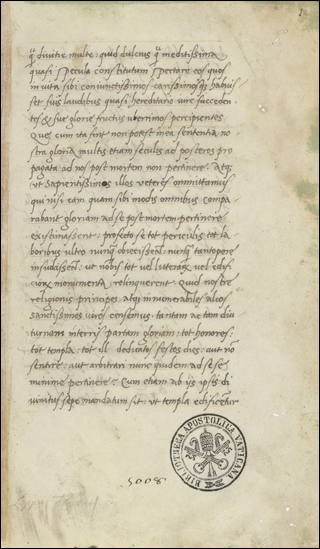 q̃ divitie multe: quid dulcius q̃ in editissima
quasi specula constitutum spectare eos quos
in vita sibi coniunctissimos carissimosq; habuis
set suis laudibus quasi hereditario iure succeden
tes & sue glorie fructus uberrimos percipientes
Que cum ita sint non potest mea sententia no
stra gloria multis etiam seculis ad posteros pro
pagata ad nos post mortem non pertinere. Atq;
ut sapientissimos illos veteres ommittamus
qui nisi eam quam sibi modis omnibus compa
rabant gloriam ad se post mortem pertinere
existimassent: profecto se tot periculis tot la
boribus ultro nunq̃ obiecissent: nunq̃ tantopere
insudassent: ut nobis tot vel litterarum vel edifi
ciorum monumenta relinquerent. Quid nostre
religionis principes atq; innumerabiles alios
sanctissimos viros censemus: tantam ac tam diu
turnam in terris partam gloriam: tot honores:
tot templa: tot ill dedicatos festos dies: aut nõ
sentire: aut arbitrari nunc quidem ad sese
minime pertinere? Cum etiam ab iis ipsis di
vinitus sepe mandatum sit: ut templa edificentur
BIBLIOTHECA APOSTOLICA VATICANA
5008